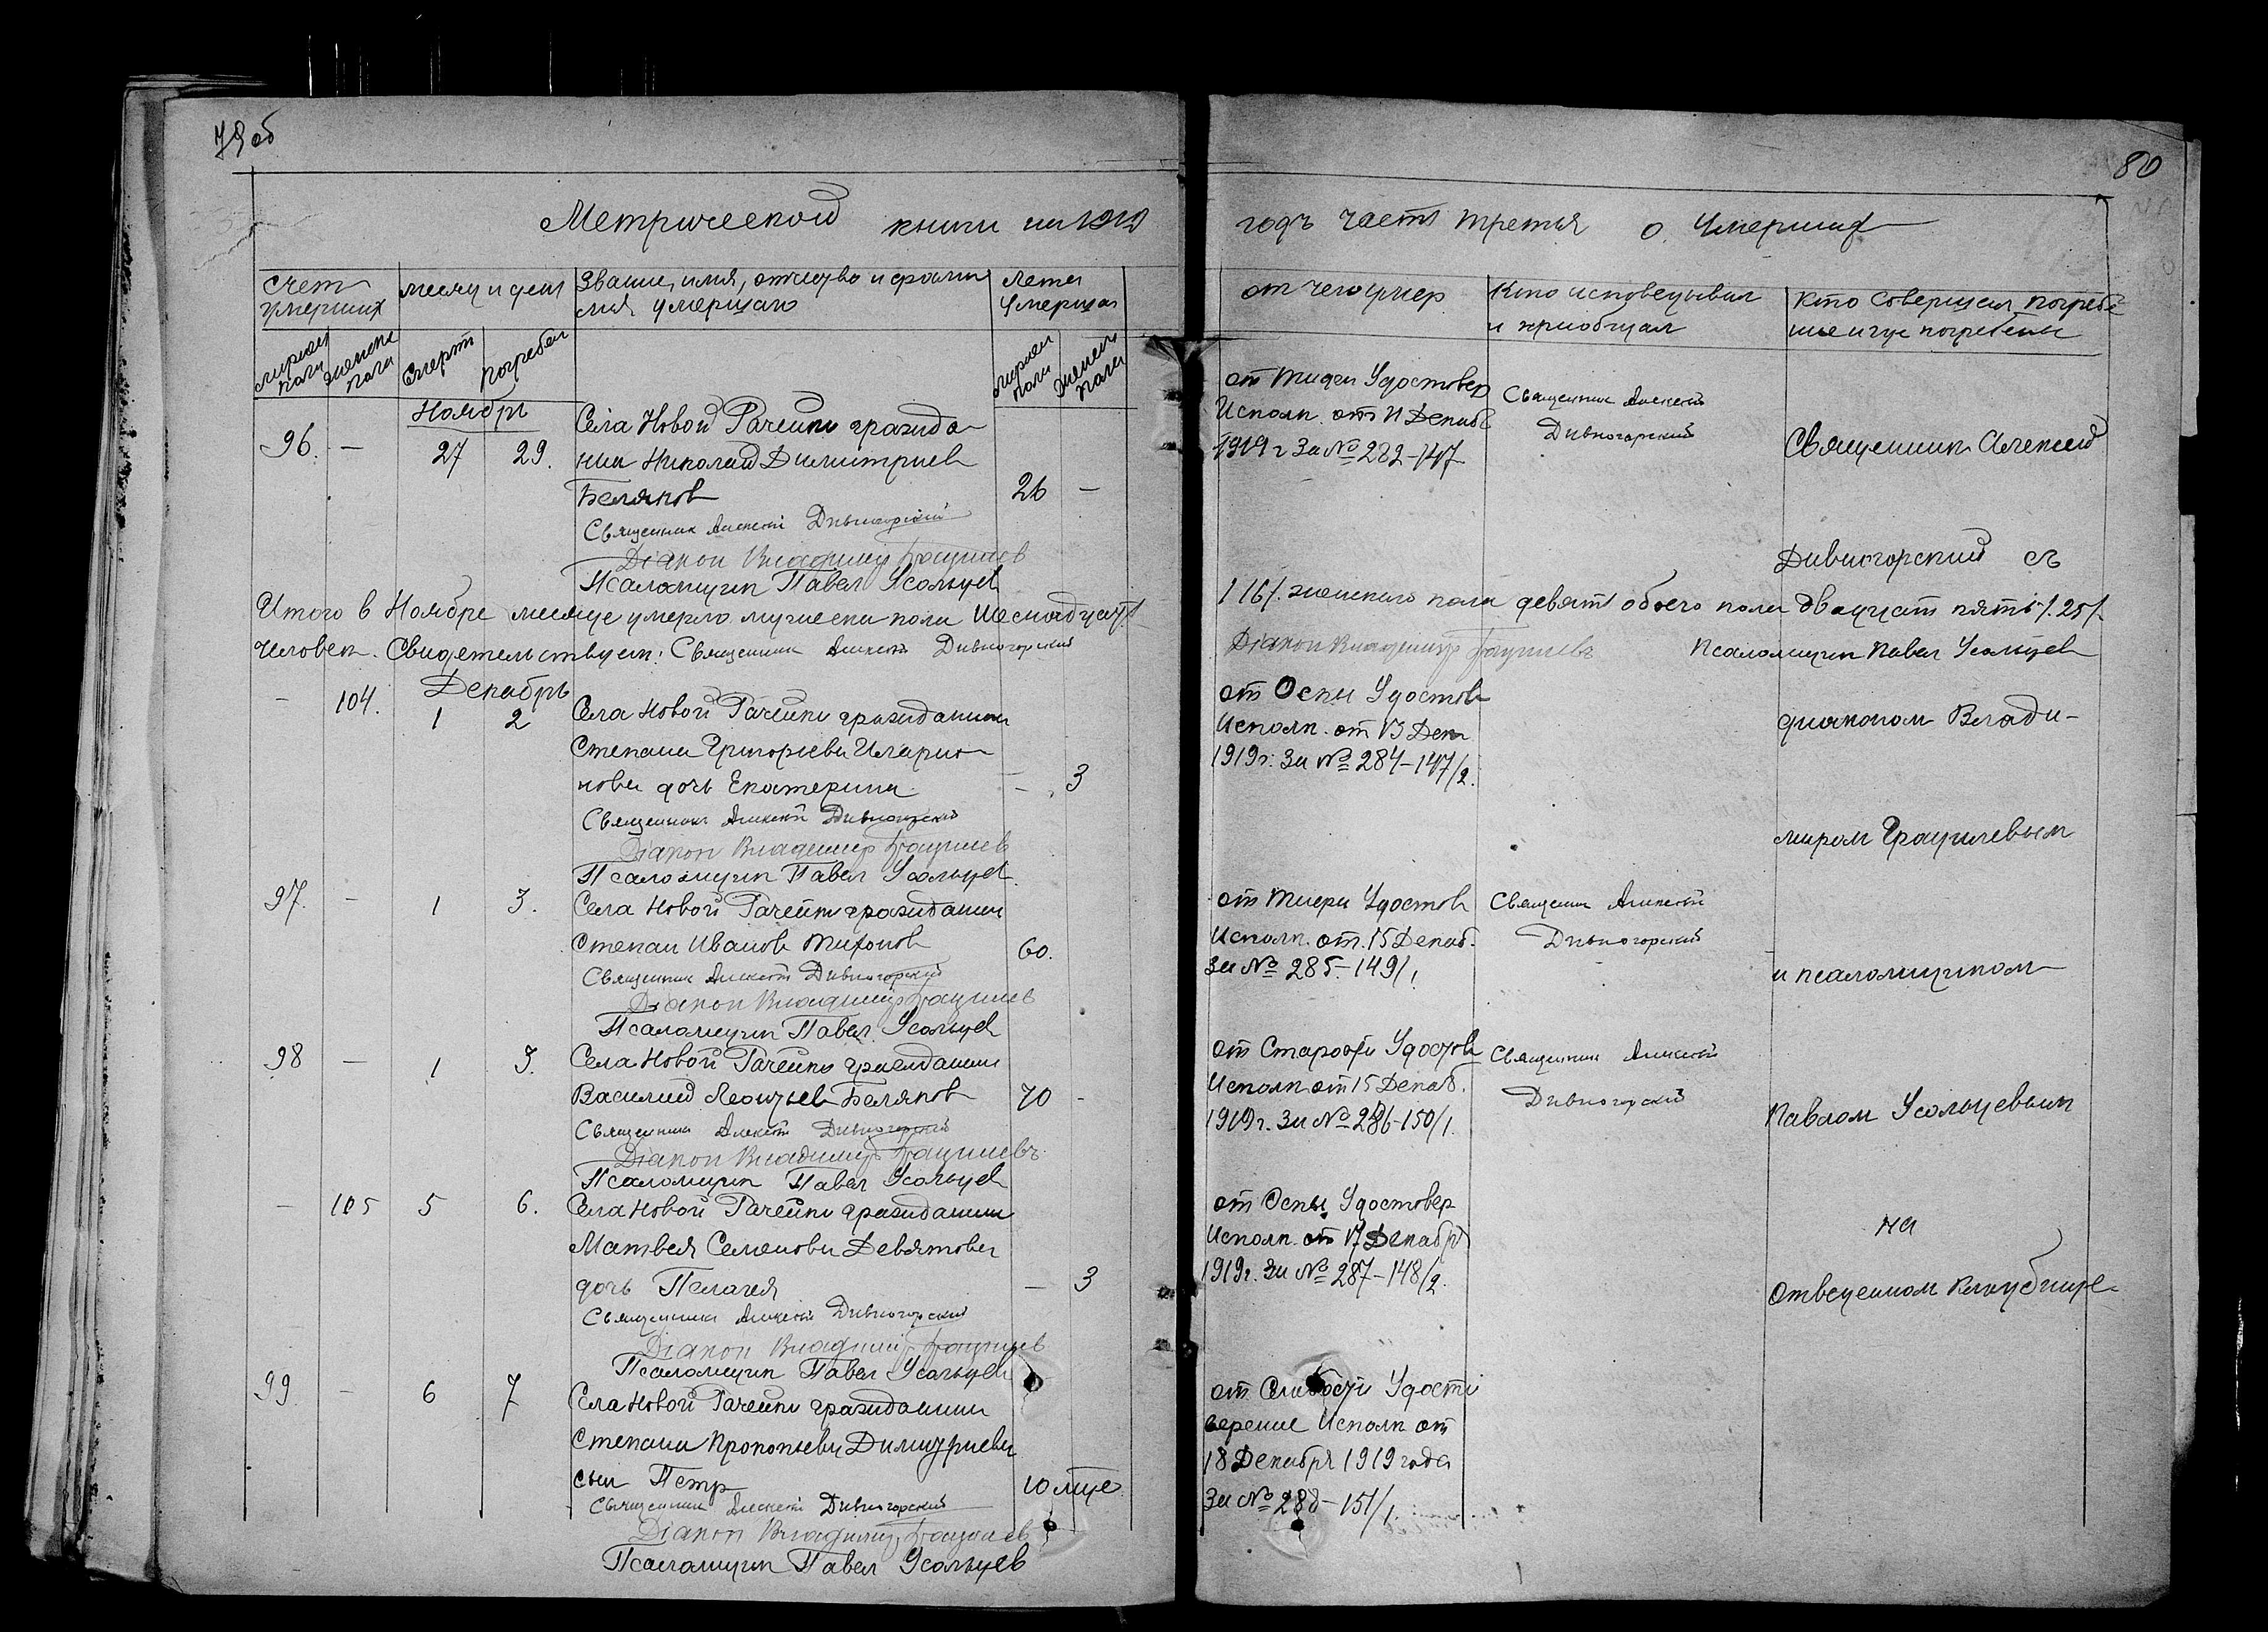 79 об
80
Метрической книги на 1919
годъ часть третья о Умерших
Счет умерших
месяц и день
Звание, имя, отчество и фамилия умершаго
Лета Умершаг
мужеск пола
женска пола
Смерти
Погребен
мужеск пола
женск пола
от чего умер
Кто исповедывал и приобщал
Кто Совершал погребение и где погребены
Ноябрь
96. — 27 29.
Села Новой Рачейки гражда-
нин Николай Димитриев
Беляков
26 —
Священник Алексей Дивногорский
Діакон Владимир Грацилев
Псаломщик Павел Усольцев
от Тифа Удостовер
Исполк. от 11 Декаб
1919 г За № 282-147
Священник Алексей
Дивногорский
Священник Алексей
Дивногорский съ
Итого в Ноябре месяце умерло мужеска пола Шеснадцать
/16/. женского пола девять обоего пола двадцат пять /.25/.
Человек. Свидетельствуем: Священник Алексей Дивногорский
Діакон Владимир Грацилевъ Псаломщик Павел Усольцев
Декабрь
— 104. 1 2
Села Новой Рачейки гражданина
Степана Григорьева Иларио-
нова дочь Екатерина
— 3
Священник Алексей Дивногорский
Діакон Владимир Грацилев
Псаломщик Павел Усольцев.
от Оспы Удостов
Исполк. от 13 Дек
1919 г. За № 284-147/2.
диаконом Влади-
миром Грацилевым
97. — 1 3.
Села Новой Рачейки гражданин
Степан Иванов Тихонов
60.
Священник Алексей Дивногорский
Діакон Владимир Грацилев
Псаломщик Павел Усольцев
от Тифа Удостов
Исполк. от. 15 Декаб.
За № 285-149/1
Священник Алексей
Дивногорский
и псаломщиком
98 — 1 3.
Села Новой Рачейки гражданин
Василий Леонтьев Беляков
70 -
Священник Алексей Дивногорский
Діакон Владимир Грацилевъ
Псаломщик Павел Усольцев
от Старости Удостов
Исполк от 15 Декаб.
1919 г. За № 286-150/1.
Священник Алексей
Дивногорский
Павлом Усольцевым
— 105 5 6.
Села Новой Рачейки гражданина
Матвея Семенова Девятова
дочь Пелагея
— 3
Священник Алексей Дивногорский
Діакон Владимир Грацилев
Псаломщик Павел Усольцев
от Оспы Удостовер
Исполк. от 17 Декабр
1919 г. За № 287-148/2.
на
отведенном кладбище
99 — 6 7
Села Новой Рачейки гражданина
Степана Прокопьева Димитриева
сын Петр
10 мце
Священник Алексей Дивногорский
Діакон Владимир Грацилев
Псаломщик Павел Усольцев
от Слабости Удосто
верение Исполк от
18 Декабря 1919 года
За № 288-151/1.